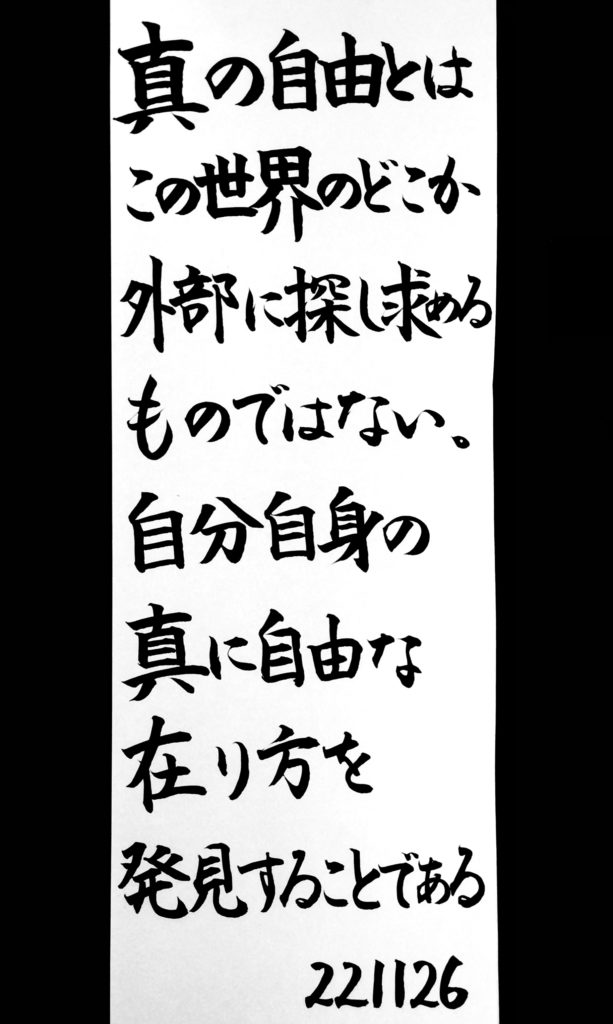 真の自由とは
この世界のどこか
外部に探し求める
ものではない。
自分自身の
真に自由な
在り方を
発見することである
221126